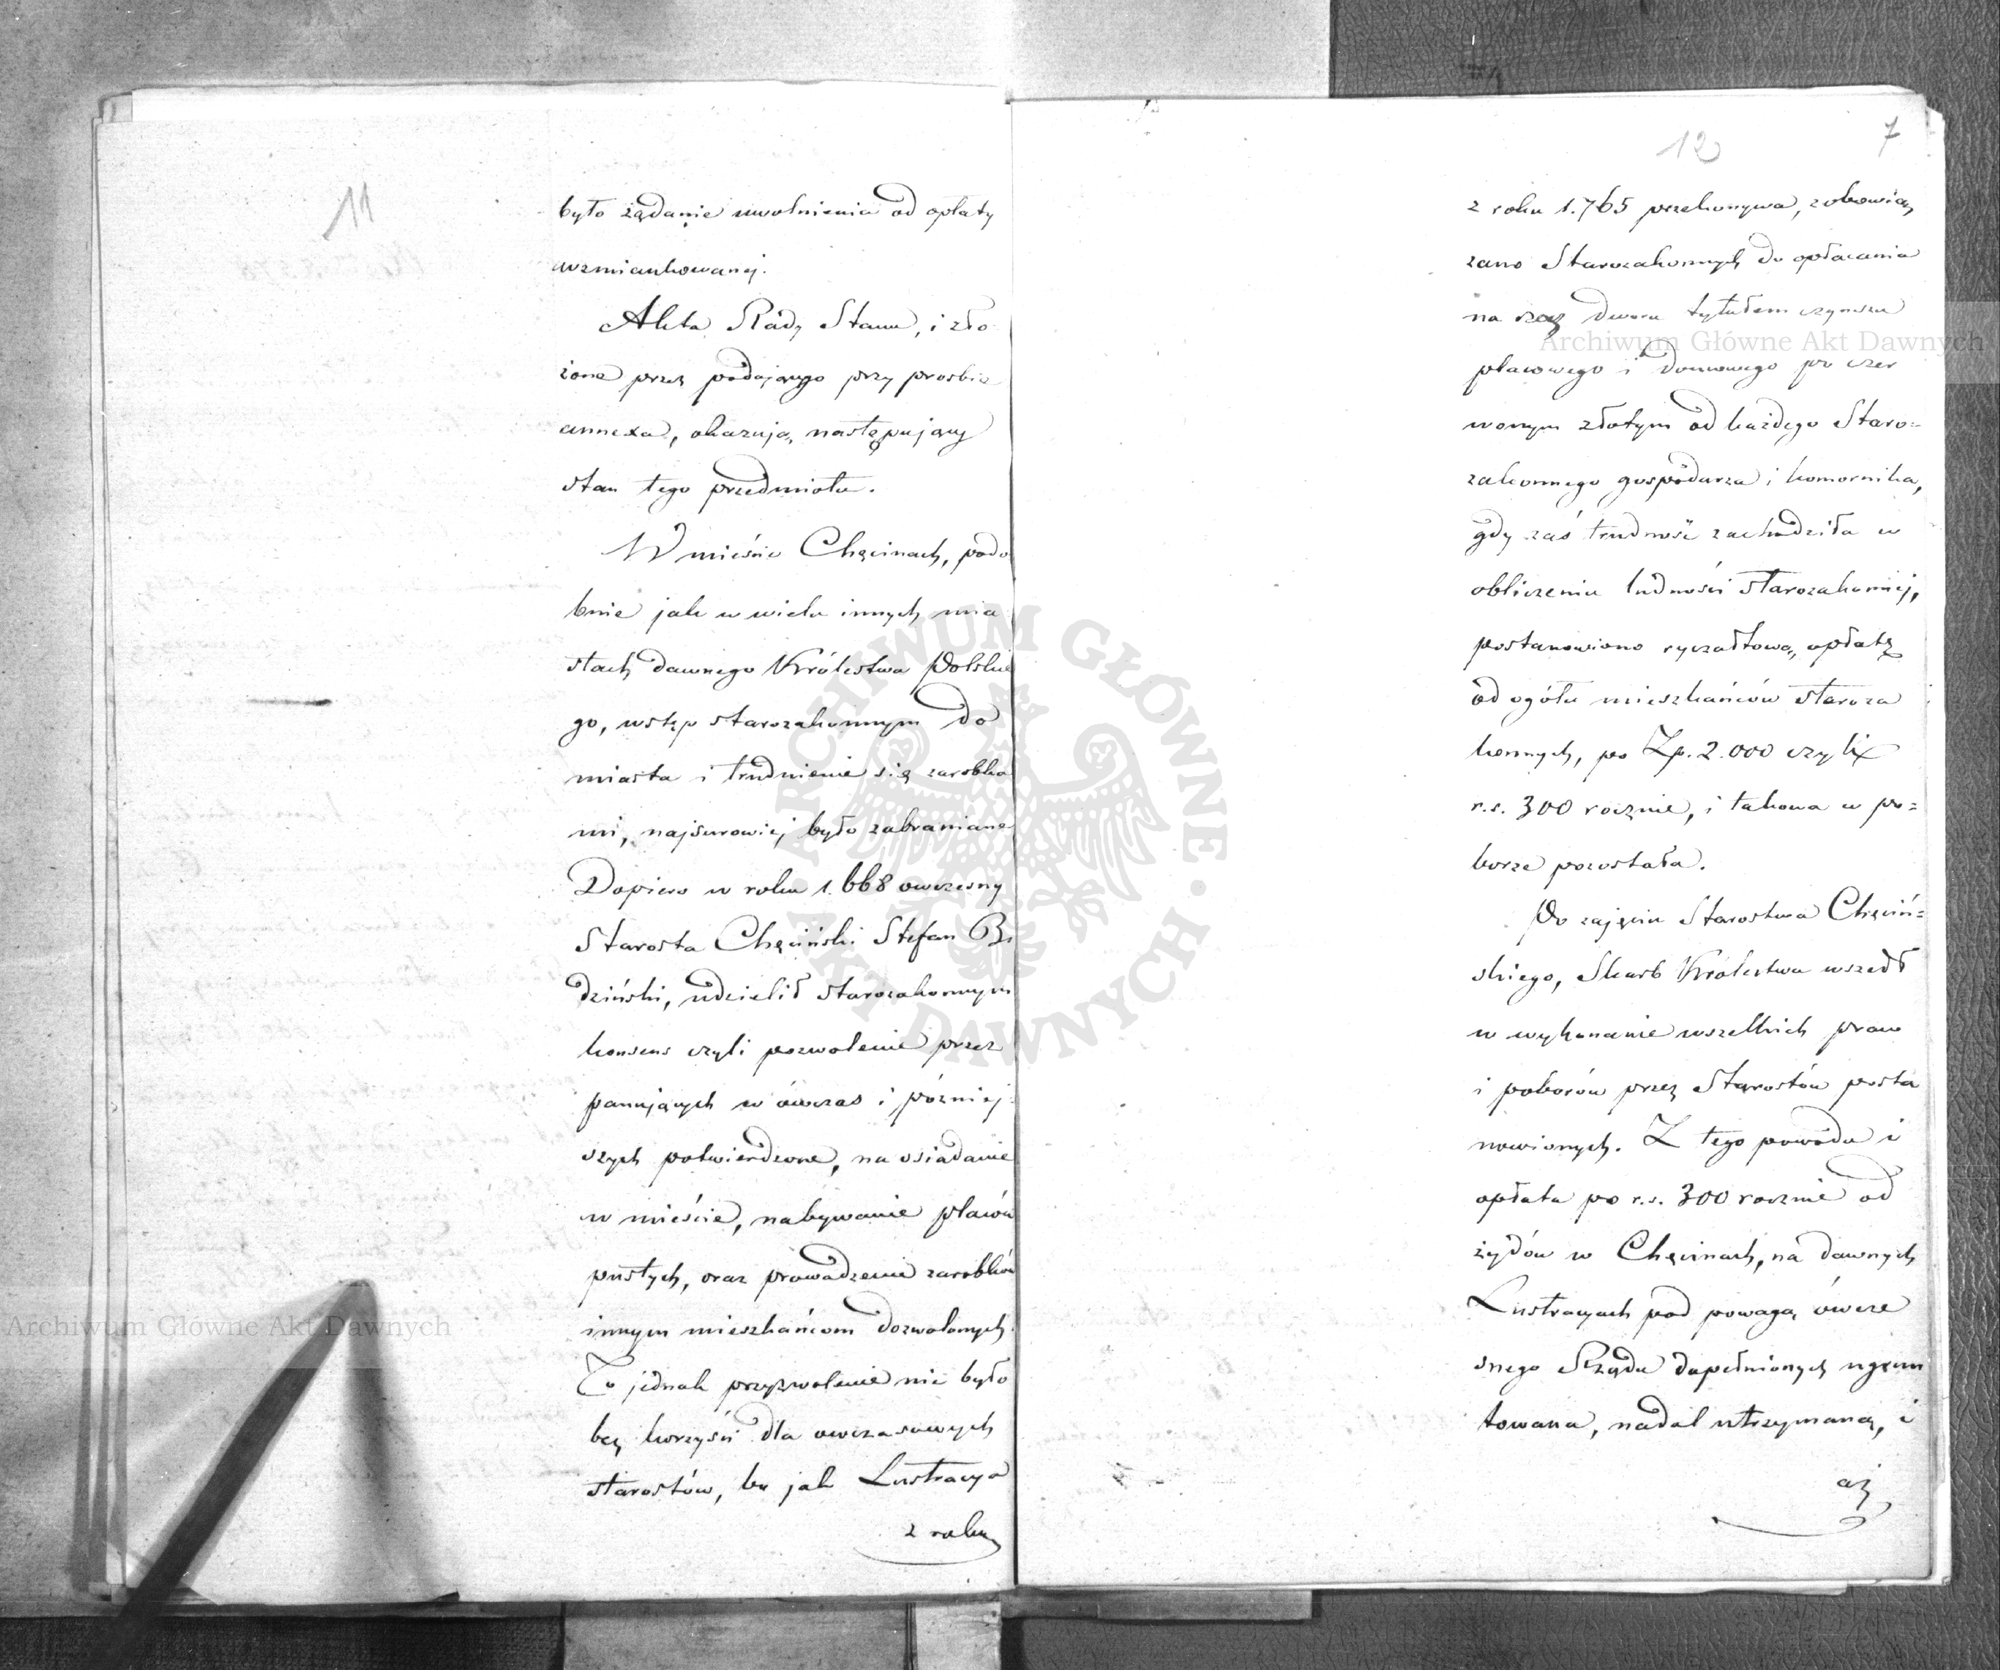 11
było żądanie uwolnienia od opłaty
wzmiankowanej.
Akta Rady Stanu, i zło
żone przez podającego przy prosbie
annexa, okazują, następujący
stan tego przedmiotu.
W mieście Chęcinach, podo
bnie jak w wielu innych mia
stach dawnego Królestwa Polskie
go, wstęp starozakonnym do
miasta i trudnienie się zarobka
mi, najsurowiej było zabronione
Dopiero w roku 1.668 owczesny
Starosta Chęciński Stefan Bi
dziński, udzielił starozakonnym
konsens czyli pozwolenie przez
panujących w ówczas i później
szych potwierdzone, na osiadanie
w mieście, nabywanie placów
pustych, oraz prowadzenie zarobków
innym mieszkańcom dozwolonych.
To jednak przyzwolenie nie było
bez korzyści dla owczasowych
starostów, bo jak Lustracya
z roku
12
7
z roku 1.765 przekonywa, zobowią
zano Starozakonnych do opłacania
na rzecz dworu tytułem czynszu
placowego i domowego po czer
wonym złotym od każdego Staro=
zakonnego gospodarza i komornika,
gdy zaś trudność zachodziła w
obliczeniu ludności starozakonnej,
postanowiono ryczałtową, opłatę
od ogółu mieszkańców staroza
konnych, po Zp. 2.000 czyli
r.s. 300 rocznie, i takowa w po=
borze pozostała.
Po zajęciu Starostwa Chęciń=
skiego, Skarb Królestwa wszedł
w wykonanie wszelkich praw
i poborów przez Starostów posta
nowionych. Z tego powodu i
opłata po r.s. 300 rocznie od
żydów w Chęcinach, na dawnych
Lustracyach pod powagą ówcze
snego Rządu dopełnionych ugrun
towana, nadal utrzymaną, i
aż
Archiwum Główne Akt Dawnych
Archiwum Główne Akt Dawnych
ARCHIWUM GŁÓWNE AKT DAWNYCH